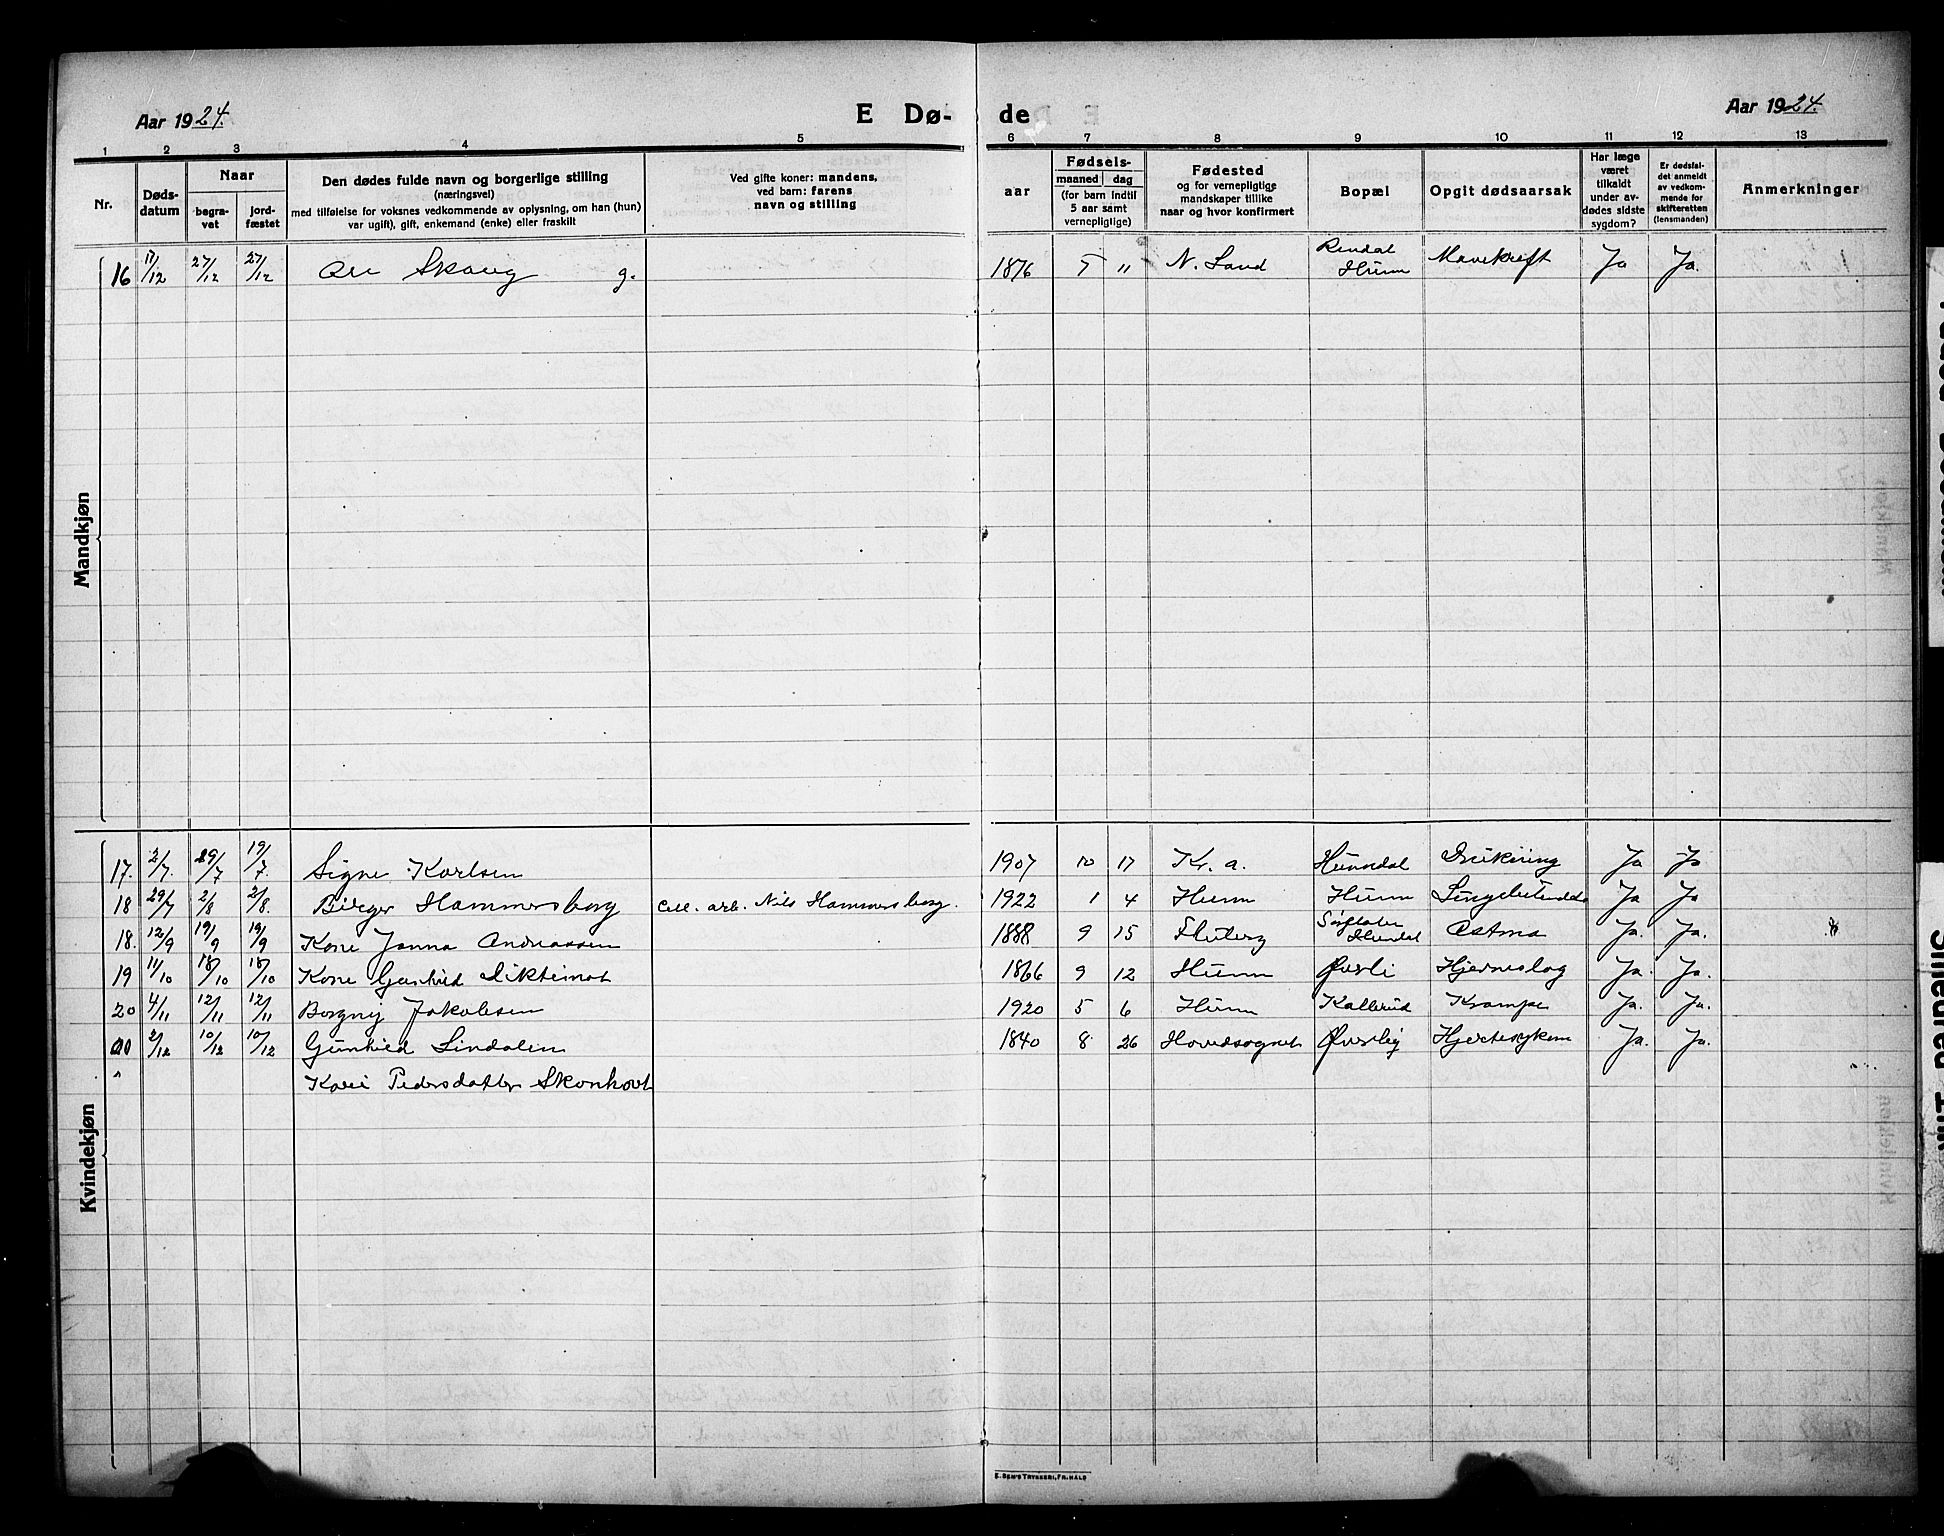 Aar 1924.
E Dø-
de
Aar 1924.
1 2 3 4 5 6 7 8 9 10 11 12 13
Nr.
Døds-
datum
Naar
begra-
vet
jord-
fæstet
Den dødes fulde navn og borgerlige stilling
(næringsvei)
med tilføielse for voksnes vedkommende av oplysning, om han (hun)
var ugift), gift, enkemand (enke) eller fraskilt
Ved gifte koner: mandens,
ved barn: farens
navn og stilling
aar
Fødsels-
maaned dag
(for barn indtil
5 aar samt
vernepligtige)
Fødested
og for vernepligtige
mandskaper tillike
naar og hvor konfirmert
Bopæl
Opgit dødsaarsak
Har læge
været
tilkaldt
under av-
dødes sidste
sygdom?
Er dødsfal-
det anmeldt
av vedkom-
mende for
skifteretten
(lensmanden)
Anmerkninger
Mandkjøn
16 17/12 27/12 27/12 Skaug g. 1876 5 " N. Land Hunn Mavekræft Ja Ja.
Kvindekjøn
17. 2/7. 29/7 19/7 Signe Karlsen 1907 10 17 Kr. a. Hunndal Ja Ja
18 29/7 2/8 2/8. Birger Hammersborg Cell. arb. Nils Hammersborg. 1922 1 4 Hunn Hunn Ja Ja
18. 12/9 19/9 19/9 Kone Janna Andreassen 1888 9 15 Fluberg Astma Ja. Ja.
19 11/10 18/10 18/10 Kone 1866 9 12 Hunn Øverli Hjerneslag Ja. Ja.
20 4/11 12/11 12/11 Borgny Jakobsen 1920 5 6 Hunn Kallerud Krampe Ja. Ja.
2/12 10/12 10/12 Gunhild Lindalen 1840 8 26 Hovedsognet Øverby Ja. Ja.
" Kari Pedersdatter Skonhovt
E. SEM'S TRYKKERI, FR.HALD